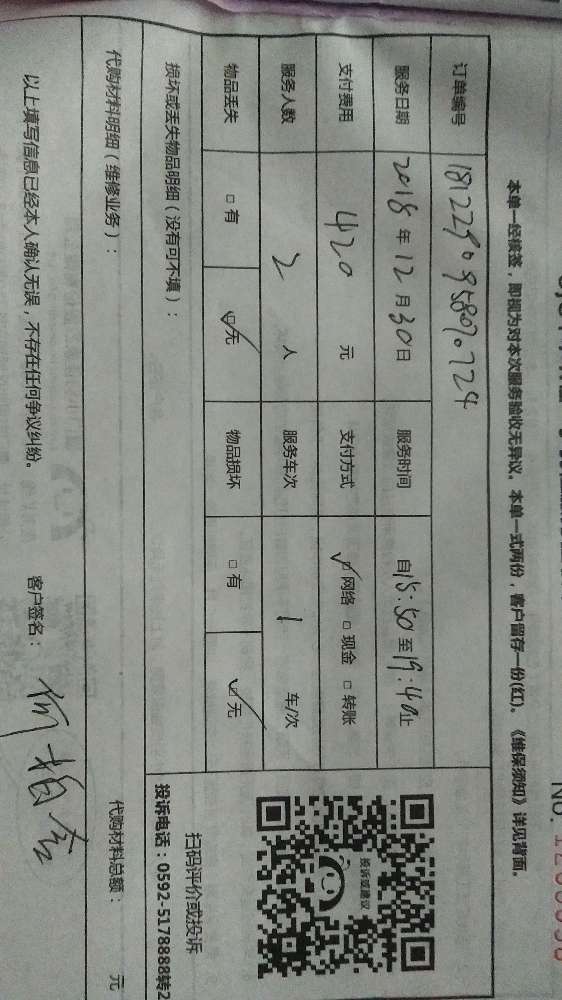 本单一经核签，即视为对本次服务验收无异议。本单一式两份，客户留存一份(红)。《维保须知》详见背面。
订单编号 181229095890724
服务日期 2018年12月30日 服务时间 自15:50至19:40止
支付费用 420 元 支付方式 ☑网络 □现金 □转账
服务人数 2 人 服务车次 1 车/次
物品丢失 □有 ☑无 物品损坏 □有 ☑无
损坏或丢失物品明细（没有可不填）：
投诉或建议
扫码评价或投诉
投诉电话：0592-5178888转2
代购材料明细（维修业务）：
代购材料总额： 元
以上填写信息已经本人确认无误，不存在任何争议纠纷。 客户签名：